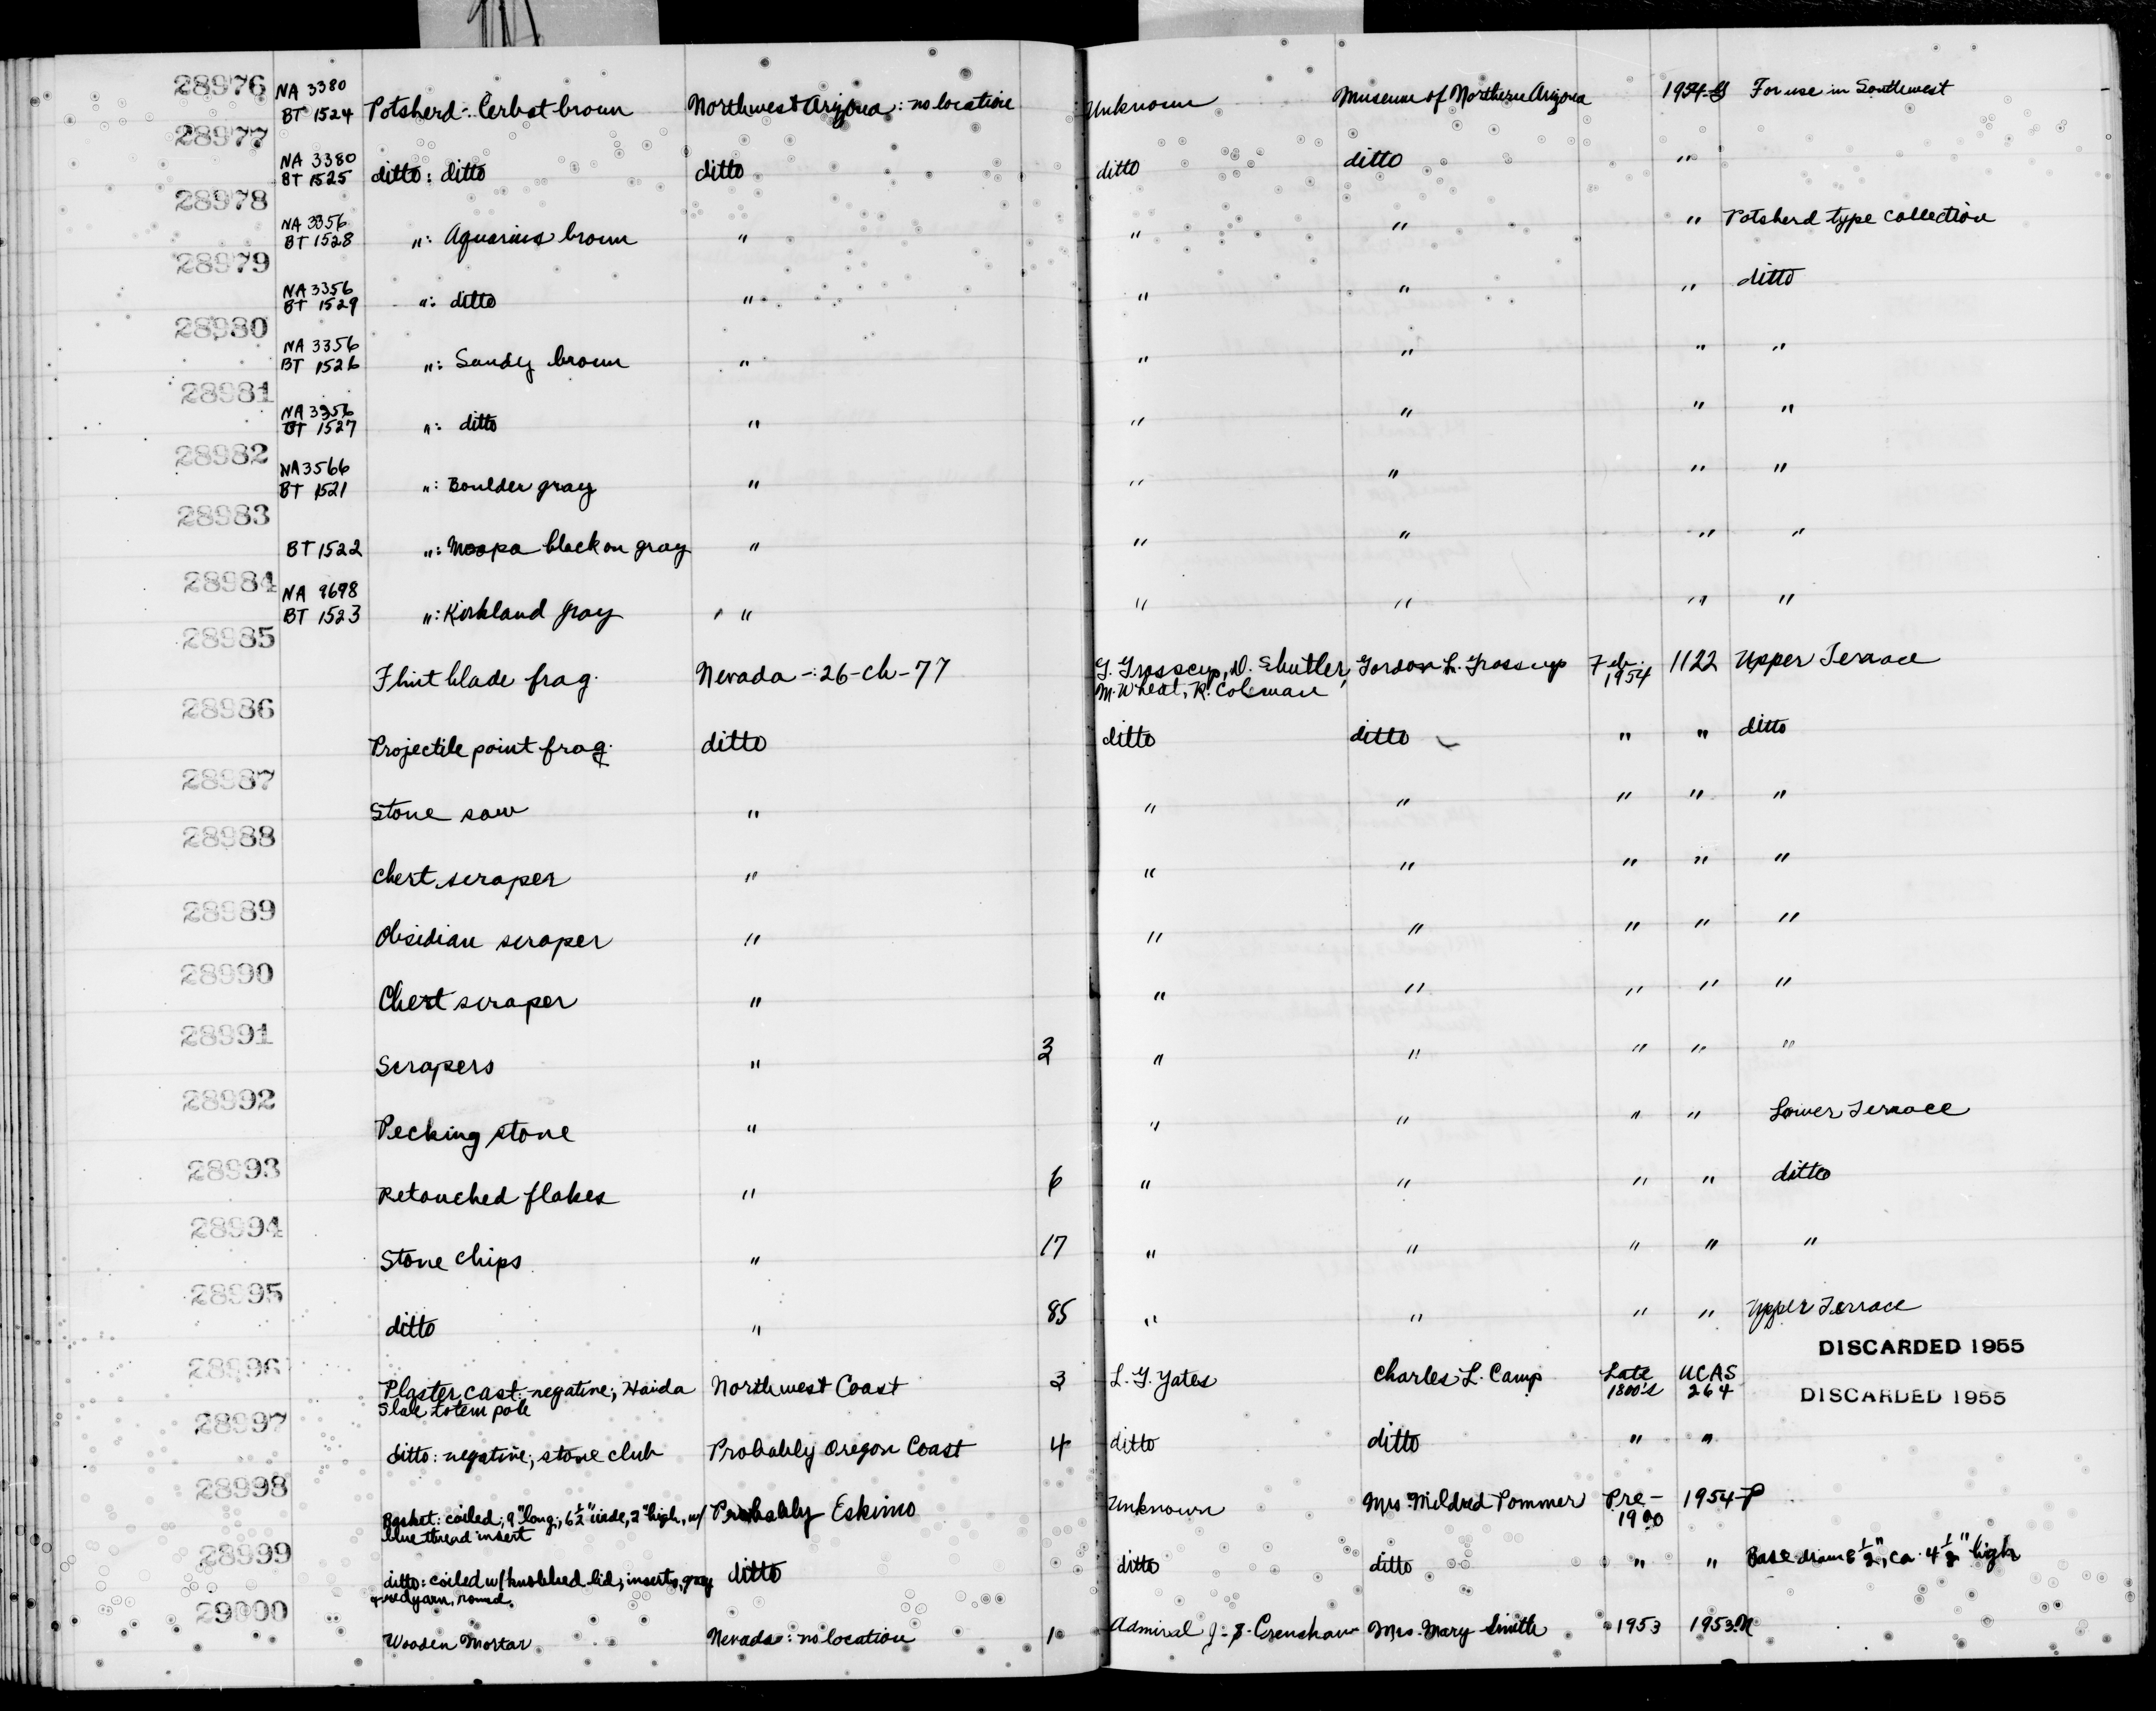 28976 NA 3380 BT 1524 Potsherd: Cerbat brown Northwest Arizona: no location Unknown Museum of Northern Arizona 1954- For use in Southwest
28977 NA 3380 BT 1525 ditto: ditto ditto ditto ditto "
28978 NA 3356 BT 1528 ": Aquarius brown " " " " Potsherd type collection
28979 NA 3356 BT 1529 ": ditto " " " " ditto
28980 NA 3356 BT 1526 ": Sandy brown " " " " "
28981 NA 3356 BT 1527 ": ditto " " " " "
28982 NA 3566 BT 1521 ": Boulder gray " " " " "
28983 BT 1522 ": Moapa black on gray " " " " "
28984 NA 9698 BT 1523 ": Kirkland gray " " " " "
28985 Flint blade frag. Nevada -: 26-Ch-77 G. Grosscup, D. Shutler, M. Wheat, R. Coleman Gordon L. Grosscup Feb. 1954 1122 Upper Terrace
28986 Projectile point frag. ditto ditto ditto " " ditto
28987 Stone saw " " " " " "
28988 Chert scraper " " " " " "
28989 Obsidian scraper " " " " " "
28990 Chert scraper " " " " " "
28991 Scrapers " " " " " "
28992 Pecking stone " " " " " Lower Terrace
28993 Retouched flakes " 6 " " " " ditto
28994 Stone chips " 17 " " " " "
28995 ditto " 85 " " " " Upper Terrace
DISCARDED 1955
28996 Plaster cast: negative; Haida Slate totem pole Northwest Coast 3 L. G. Yates Charles L. Camp Late 1800's UCAS 264 DISCARDED 1955
28997 ditto: negative; stone club Probably Oregon Coast 4 ditto ditto " "
28998 Basket: coiled; 9" long; 6½" wide, 2" high, w/ blue thread insert Probably Eskimo Unknown Mrs Mildred Pommer Pre-1900 1954-P
28999 ditto: coiled w/ knobbed lid; inserts, gray + red yarn, round. ditto ditto ditto " " Base diam ½", ca. 4½" high
29000 Wooden Mortar Nevada: no location 1 Admiral J. S. Crenshaw Mrs. Mary Smith 1953 1953N